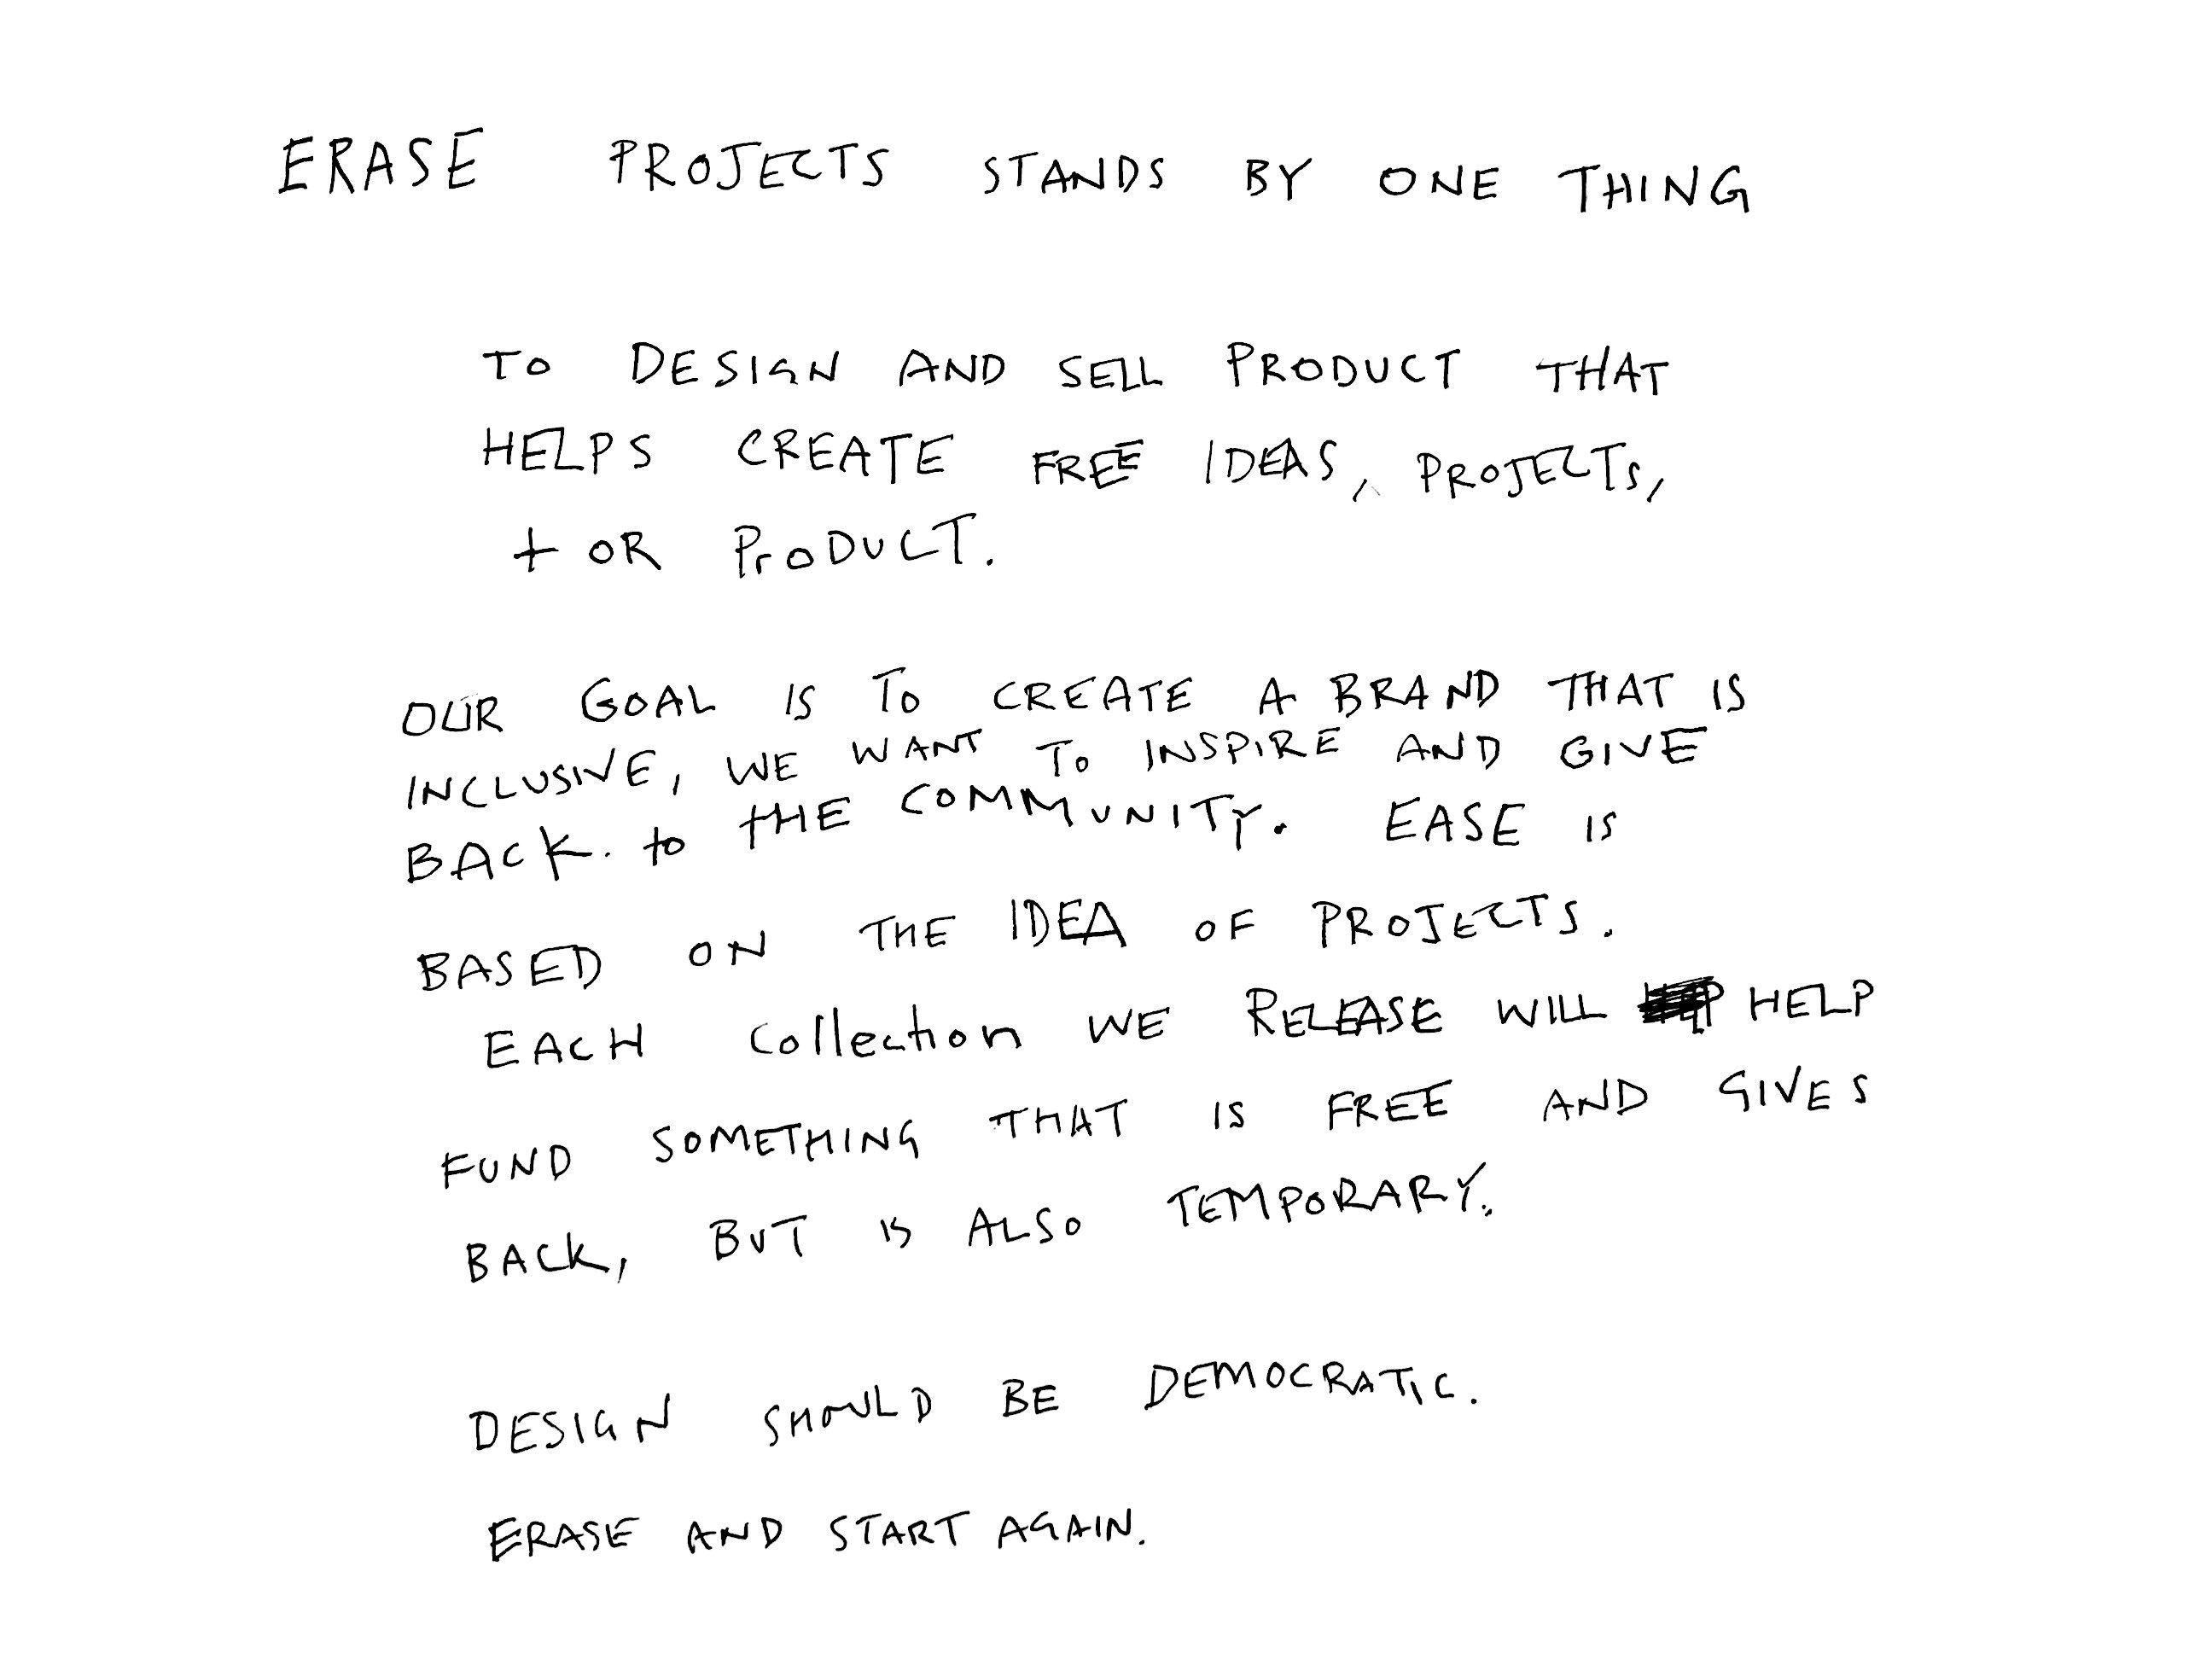 ERASE PROJECTS STANDS BY ONE THING
TO DESIGN AND SELL PRODUCT THAT
HELPS CREATE FREE IDEAS, PROJECTS,
+ OR PrODUCT.
OUR GOAL IS TO CREATE A BRAND THAT IS
INCLUSIVE, WE WANT TO INSPIRE AND GIVE
BACK. to tHE COMMUNITY. EASE IS
BASED ON THE IDEA OF PROJECTS.
EACH Collection WE RELEASE WILL HELP
FUND SOMETHING THAT IS FREE AND GIVES
BACK, BUT IS ALSO TEMPORARY.
DESIGN SHOULD BE DEMOCRATIC.
ERASE AND START AGAIN.